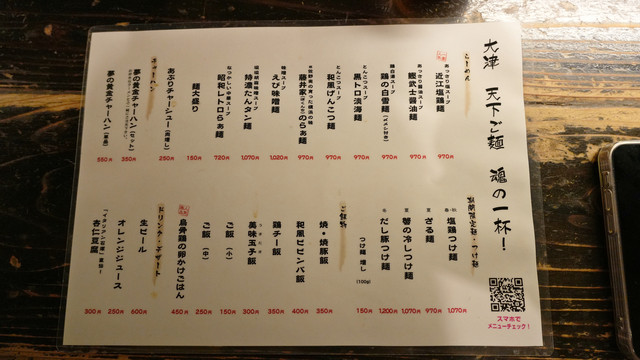 大津 天下ご麺 魂の一杯！
らーめん
あっさり塩スープ
近江塩鶏麺 970円
あっさり醤油スープ
鰹武士醤油麺 970円
鶏白湯スープ
鶏の白雪麺 970円
とんこつスープ
黒トロ浜海麺 970円
とんこつスープ
和風げんこつ麺 970円
藤井家のらぁ麺 970円
味噌スープ
えび味噌麺 1,020円
持濃げんタン麺 1,070円
なつかしい中華スープ
昭和レトロらぁ麺 720円
麺大盛り 150円
あぶりチャーシュー（肉増し） 250円
チャーハン
夢の黄金チャーハン（セット） 350円
夢の黄金チャーハン（単品） 550円
期間限定麺・つけ麺
塩鶏つけ麺 1,070円
ざる麺 970円
蟹の冷しつけ麺 1,070円
だし豚つけ麺 1,200円
つけ麺 増し（100g） 150円
ご飯物
焼・焼豚飯 350円
和風ビビンバ飯 400円
鶏チー飯 350円
美味玉子飯 300円
ご飯（小） 150円
ご飯（中） 250円
烏骨鶏の卵かけごはん 450円
ドリンク・デザート
生ビール 600円
オレンジジュース 250円
杏仁豆腐 300円
スマホで
メニューチェック！